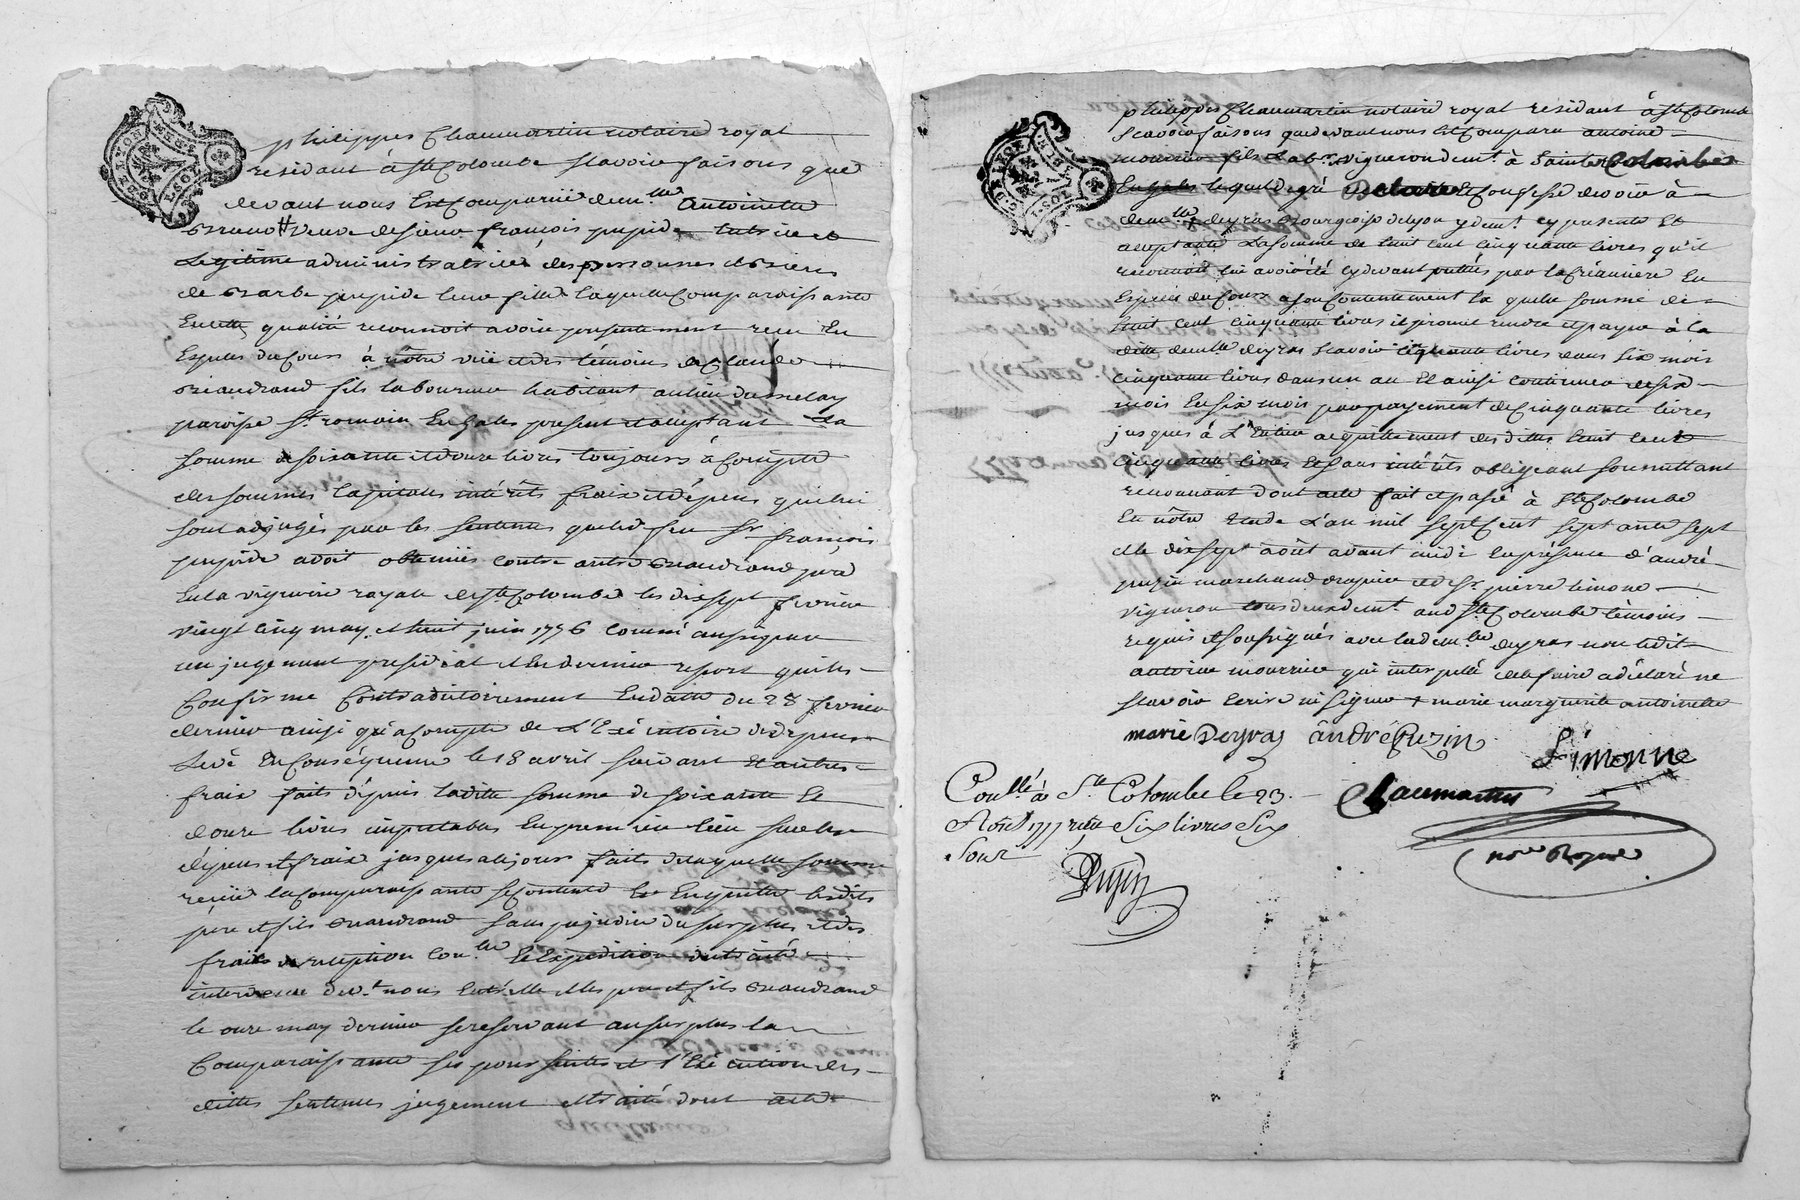 philippes Chaumartin notaire royal
résidant à Ste Colombe scavoir faisons que
devant nous Est Comparüe dem.lle antoinette
veuve de sieur françois pupide tutrice et
Legitime administratrice des personnes et biens
de Barbe pupide leur fille laquelle Comparoissante
En cette qualité reconnoit avoir presentement receu En
Especes du Cours à nôtre vüe et des témoins de Claude
fils laboureur habitant au lieu du melay
paroisse St romain En Gales present et acceptant la
somme de soixante et douze livres toujours à Compte
des sommes Capitales intérêts frais et dépens qui lui
sont adjugés par les sentences que led feu Sr françois
pupide avoit obtenües contre autre pere
En la viguerie royale de Ste Colombe les dix sept fevrier
vingt cinq may et huit juin 1776 comme aussi par
un jugement presidial et En dernier ressort qui les
Confirme Contradictoirement En datte du 28 fevrier
dernier ainsi qu'à compte de L'Exécutoire de dépens
Levé En Conséquence le 18 avril suivant Et autres
frais faits depuis laditte somme de soixante Et
douze livres imputables En premier lieu sur les
dépens et frais jusques à ce jour faits de laquelle somme
reçüe la Comparoissante se contente Et En quitte lesdits
pere et fils sans préjudice du surplus et des
frais de reception Con.lle et Expedition du traité
intervenu dev.t nous Entre elle et les pere et fils
le onze may dernier se reservant au surplus la
Comparoissante ses poursuittes et l'Exécution des
dittes sentences jugement et traité dont acte
philippes Chaumartin notaire royal résidant à Ste Colombe
Scavoir faisons que devant nous Est Comparu antoine
mournier fils d'ab. vigneron dem.t à Sainte Colombe
En Gales lequel de gré declare et Confesse devoir à
dem.lle deyras Bourgeoise de lyon y dem.t cy presente Et
acceptante La somme de huit cent cinquante livres qu'il
reconnoit lui avoir été cy devant prêtés par la Créanciere En
Especes du Cours à son Contentement la quelle somme de
huit cent cinquante livres il promet rendre et payer à la
ditte demlle deyras Scavoir Cinquante livres dans six mois
cinquante livres dans un an Et ainsi continuer de six
mois En six mois par payement de Cinquante livres
jusques à L'Entier acquittement des dittes huit cent
cinquante livres Et sans intérêts obligeant soumettant
renonçant dont acte fait et passé à Ste Colombe
En nôtre Etude L'an mil sept Cent septante sept
et le dix sept août avant midi En présence d'andré
puzin marchand drapier et de Sr pierre limone
vigneron tous deux dem.t aud Ste Colombe témoins
requis et soussignés avec lad dem.lle deyras non ledit
antoine mournier qui interpellé de le faire a déclaré ne
scavoir Ecrire ni signer + marie marguerite antoinette
marie Deyras andré Puzin
Limonne
Chaumartin
no.re Royal
Con.llé à Ste Colombe le 23.
Août 1777 reçu Six livres Six
Sous